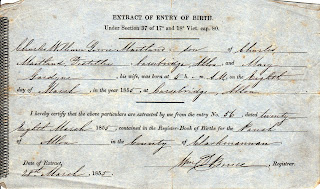 EXTRACT OF ENTRY OF BIRTH.
Under Section 37 of 17º and 18º Vict. cap. 80.
Charles William Maitland son of Charles
Maitland Distiller Carsebridge, Alloa and Mary
his wife, was born at 5 h. A.M. on the Eighth
day of March in the year 1855, at Carsebridge, Alloa
I hereby certify that the above particulars are extracted by me from the entry No. 56, dated twenty
Eighth March 1855, contained in the Register-Book of Births for the Parish
of Alloa in the County of Clackmannan
Registrar.
Date of Extract,
28th March 1855.